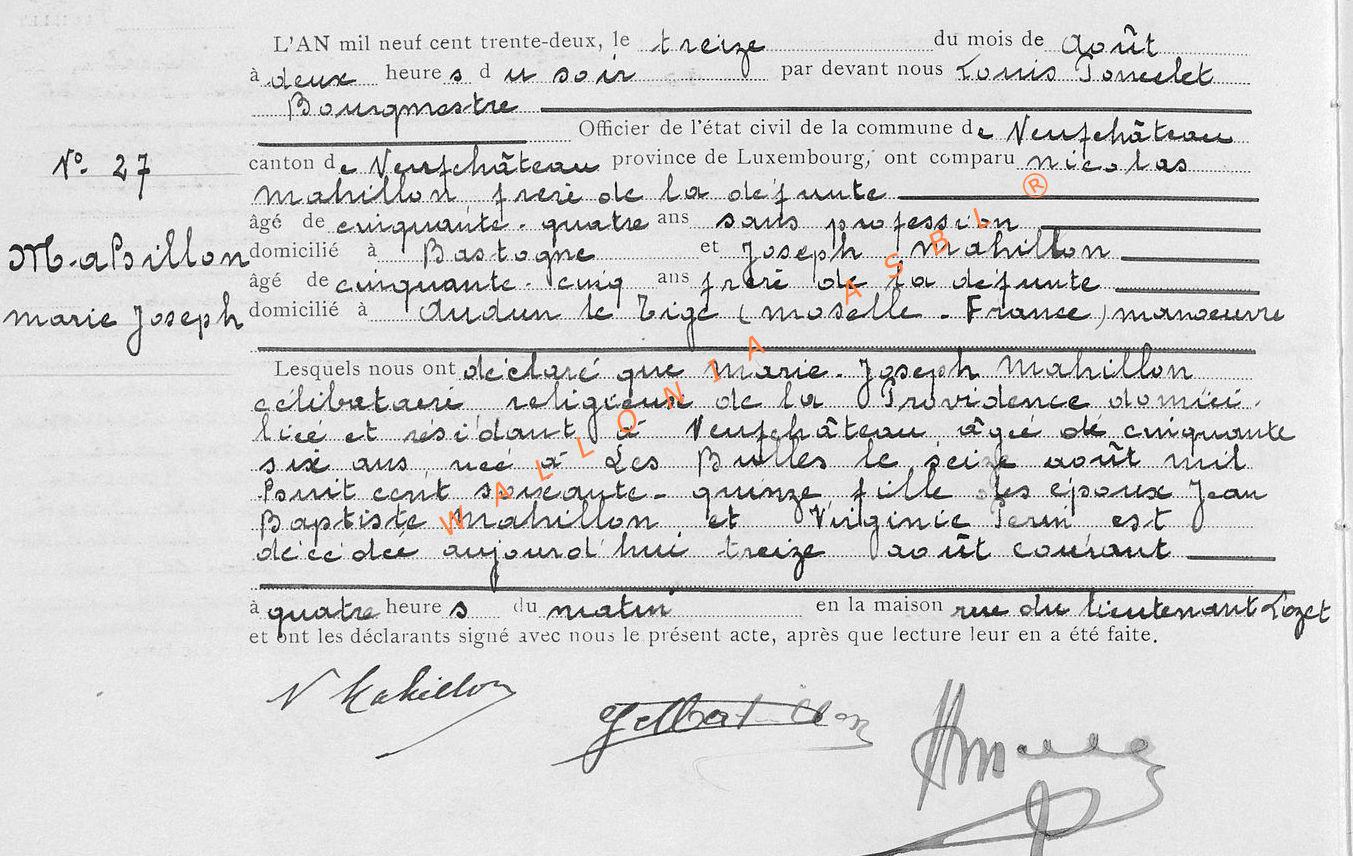 L'AN mil neuf cent trente-deux, le treize du mois de Août
à deux heures du soir par devant nous Louis Poncelet
Bourgmestre
Officier de l'état civil de la commune de Neufchâteau
N° 27
canton de Neufchâteau province de Luxembourg, ont comparu nicolas
Mahillon frère de la défunte
âgé de cinquante-quatre ans sans profession
Mahillon
domicilié à Bastogne et Joseph Mahillon
âgé de cinquante-cinq ans frère de la défunte
marie Joseph
domicilié à Audun le Tige (Moselle - France) manoeuvre
Lesquels nous ont déclaré que Marie-Joseph Mahillon
célibataire religieuse de la Providence domici-
liée et résidant à Neufchâteau âgée de cinquante
six ans, née à Les Bulles le seize août mil
huit cent soixante-quinze fille des époux Jean
Baptiste Mahillon et Virginie Perin est
décédée aujourd'hui treize août courant
à quatre heures du matin en la maison rue du lieutenant Lozet
et ont les déclarants signé avec nous le présent acte, après que lecture leur en a été faite.
N Mahillon
WALLONIA ASBL ®